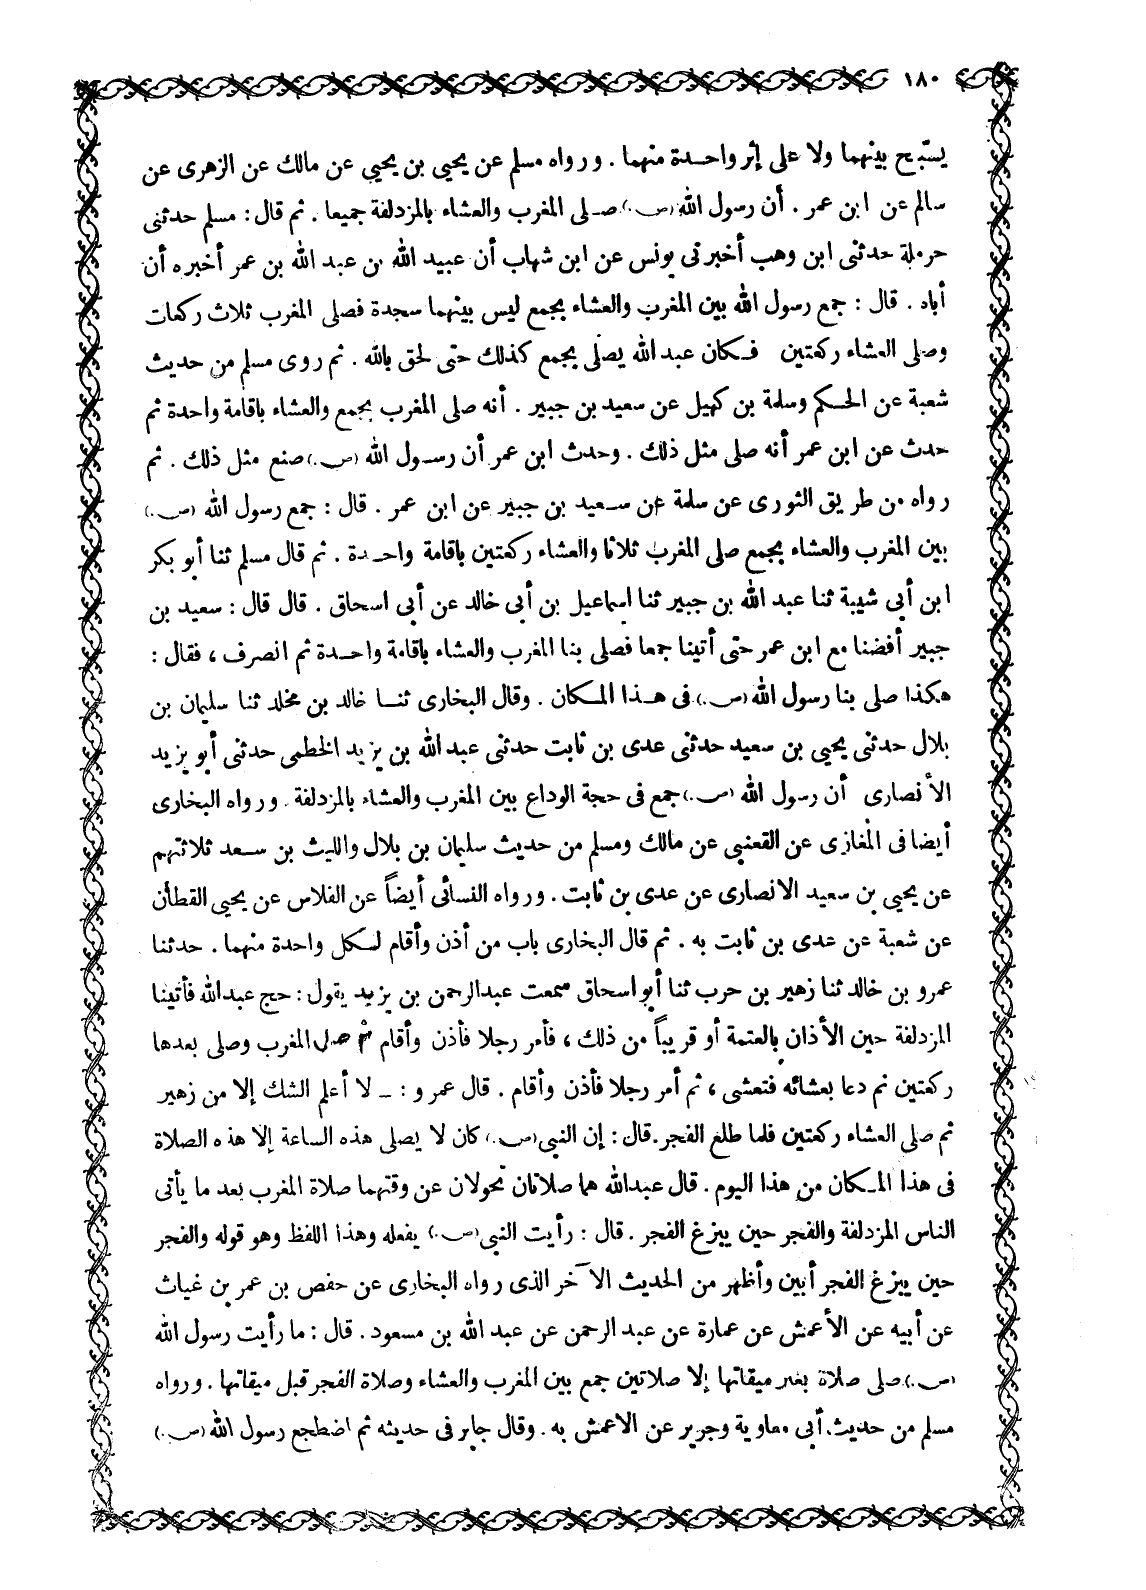 ١٨٠
يسبح بينهما ولا على إثر واحدة منهما . ورواه مسلم عن يحيى بن يحيى عن مالك عن الزهرى عن
سالم عن ابن عمر . أن رسول الله (ص.) صلى المغرب والعشاء بالمزدلفة جميعا . ثم قال : مسلم حدثنى
حرملة حدثنى ابن وهب أخبرنى يونس عن ابن شهاب أن عبيد الله بن عبد الله بن عمر أخبره أن
أباه . قال : جمع رسول الله بين المغرب والعشاء بجمع ليس بينهما سجدة فصلى المغرب ثلاث ركعات
وصلى العشاء ركعتين فكان عبد الله يصلى بجمع كذلك حتى لحق بالله . ثم روى مسلم من حديث
شعبة عن الحكم وسلمة بن كهيل عن سعيد بن جبير . أنه صلى المغرب بجمع والعشاء باقامة واحدة ثم
حدث عن ابن عمر أنه صلى مثل ذلك . وحدث ابن عمر أن رسول الله (ص.) صنع مثل ذلك . ثم
رواه من طريق الثورى عن سلمة عن سعيد بن جبير عن ابن عمر . قال : جمع رسول الله (ص.)
بين المغرب والعشاء بجمع صلى المغرب ثلاثا والعشاء ركعتين باقامة واحدة . ثم قال مسلم ثنا أبو بكر
ابن أبي شيبة ثنا عبد الله بن جبير ثنا اسماعيل بن أبي خالد عن أبي اسحاق . قال قال : سعيد بن
جبير أفضنا مع ابن عمر حتى أتينا جمعا فصلى بنا المغرب والعشاء باقامة واحدة ثم انصرف ، فقال :
هكذا صلى بنا رسول الله (ص.) فى هذا المكان . وقال البخارى ثنا خالد بن مخلد ثنا سليمان بن
بلال حدثنى يحيى بن سعيد حدثنى عدى بن ثابت حدثنى عبد الله بن يزيد الخطمى حدثنى أبو يزيد
الأنصارى أن رسول الله (ص.) جمع فى حجة الوداع بين المغرب والعشاء بالمزدلفة . ورواه البخارى
أيضا فى المغازى عن القعنبى عن مالك ومسلم من حديث سليمان بن بلال والليث بن سعد ثلاثتهم
عن يحيى بن سعيد الانصارى عن عدى بن ثابت . ورواه النسائى أيضاً عن الفلاس عن يحيى القطان
عن شعبة عن عدى بن ثابت به . ثم قال البخارى باب من أذن وأقام لكل واحدة منهما . حدثنا
عمرو بن خالد ثنا زهير بن حرب ثنا أبو اسحاق سمعت عبدالرحمن بن يزيد يقول : حج عبدالله فأتينا
المزدلفة حين الأذان بالعتمة أو قريباً من ذلك ، فأمر رجلا فأذن وأقام ثم صلى المغرب وصلى بعدها
ركعتين ثم دعا بعشائه فتعشى ، ثم أمر رجلا فأذن وأقام . قال عمرو : ـ لا أعلم الشك إلا من زهير
ثم صلى العشاء ركعتين فلما طلع الفجر . قال : إن النبى (ص.) كان لا يصلى هذه الساعة إلا هذه الصلاة
فى هذا المكان من هذا اليوم . قال عبدالله هما صلاتان تحولان عن وقتهما صلاة المغرب بعد ما يأتى
الناس المزدلفة والفجر حين يبزغ الفجر . قال : رأيت النبى (ص.) يفعله وهذا اللفظ وهو قوله والفجر
حين يبزغ الفجر أبين وأظهر من الحديث الآخر الذى رواه البخارى عن حفص بن عمر بن غياث
عن أبيه عن الأعمش عن عمارة عن عبد الرحمن عن عبد الله بن مسعود . قال : ما رأيت رسول الله
(ص.) صلى صلاة بغير ميقاتها إلا صلاتين جمع بين المغرب والعشاء وصلاة الفجر قبل ميقاتها . ورواه
مسلم من حديث أبى معاوية وجرير عن الاعمش به . وقال جابر فى حديثه ثم اضطجع رسول الله (ص.)